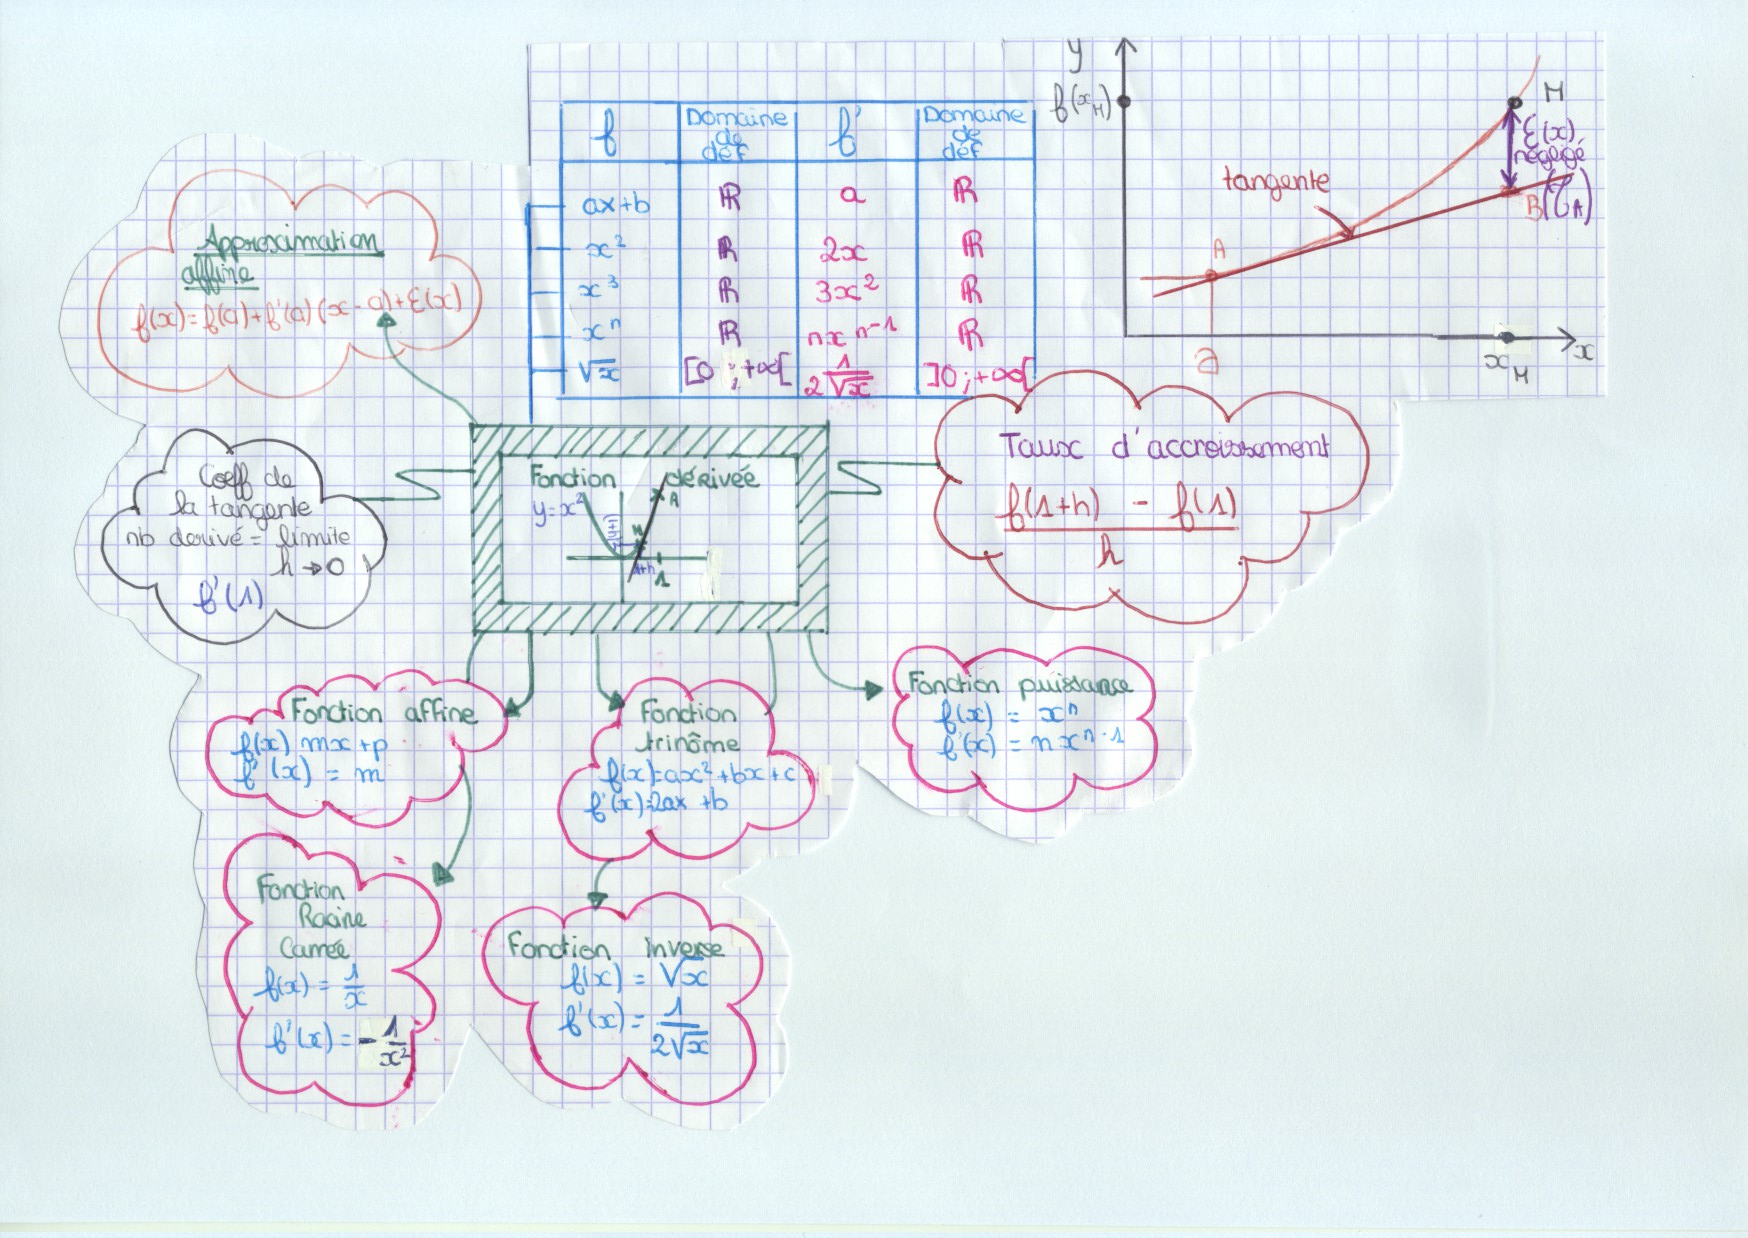 f | Domaine de def | f' | Domaine de def
ax+b | ℝ | a | ℝ
x² | ℝ | 2x | ℝ
x³ | ℝ | 3x² | ℝ
xⁿ | ℝ | nxⁿ⁻¹ | ℝ
√x | [0 ; +∞[ | 1/(2√x) | ]0 ; +∞[
y
f(x_M)
M
ℰ(x)
négligé
tangente
B (𝒯_A)
A
a
x_M
x
Approximation
affine
f(x) = f(a) + f'(a) (x - a) + ℰ(x)
Coeff de
la tangente
nb derivé = limite
h → 0
f'(1)
Fonction dérivée
y = x²
A
M
1+h
1
Taux d'accroissement
f(1+h) - f(1)
h
Fonction affine
f(x) mx + p
f'(x) = m
Fonction
trinôme
f(x) = ax² + bx + c
f'(x) = 2ax + b
Fonction puissance
f(x) = xⁿ
f'(x) = n xⁿ⁻¹
Fonction
Racine
Carrée
f(x) = 1/x
f'(x) = -1/x²
Fonction inverse
f(x) = √x
f'(x) = 1/(2√x)